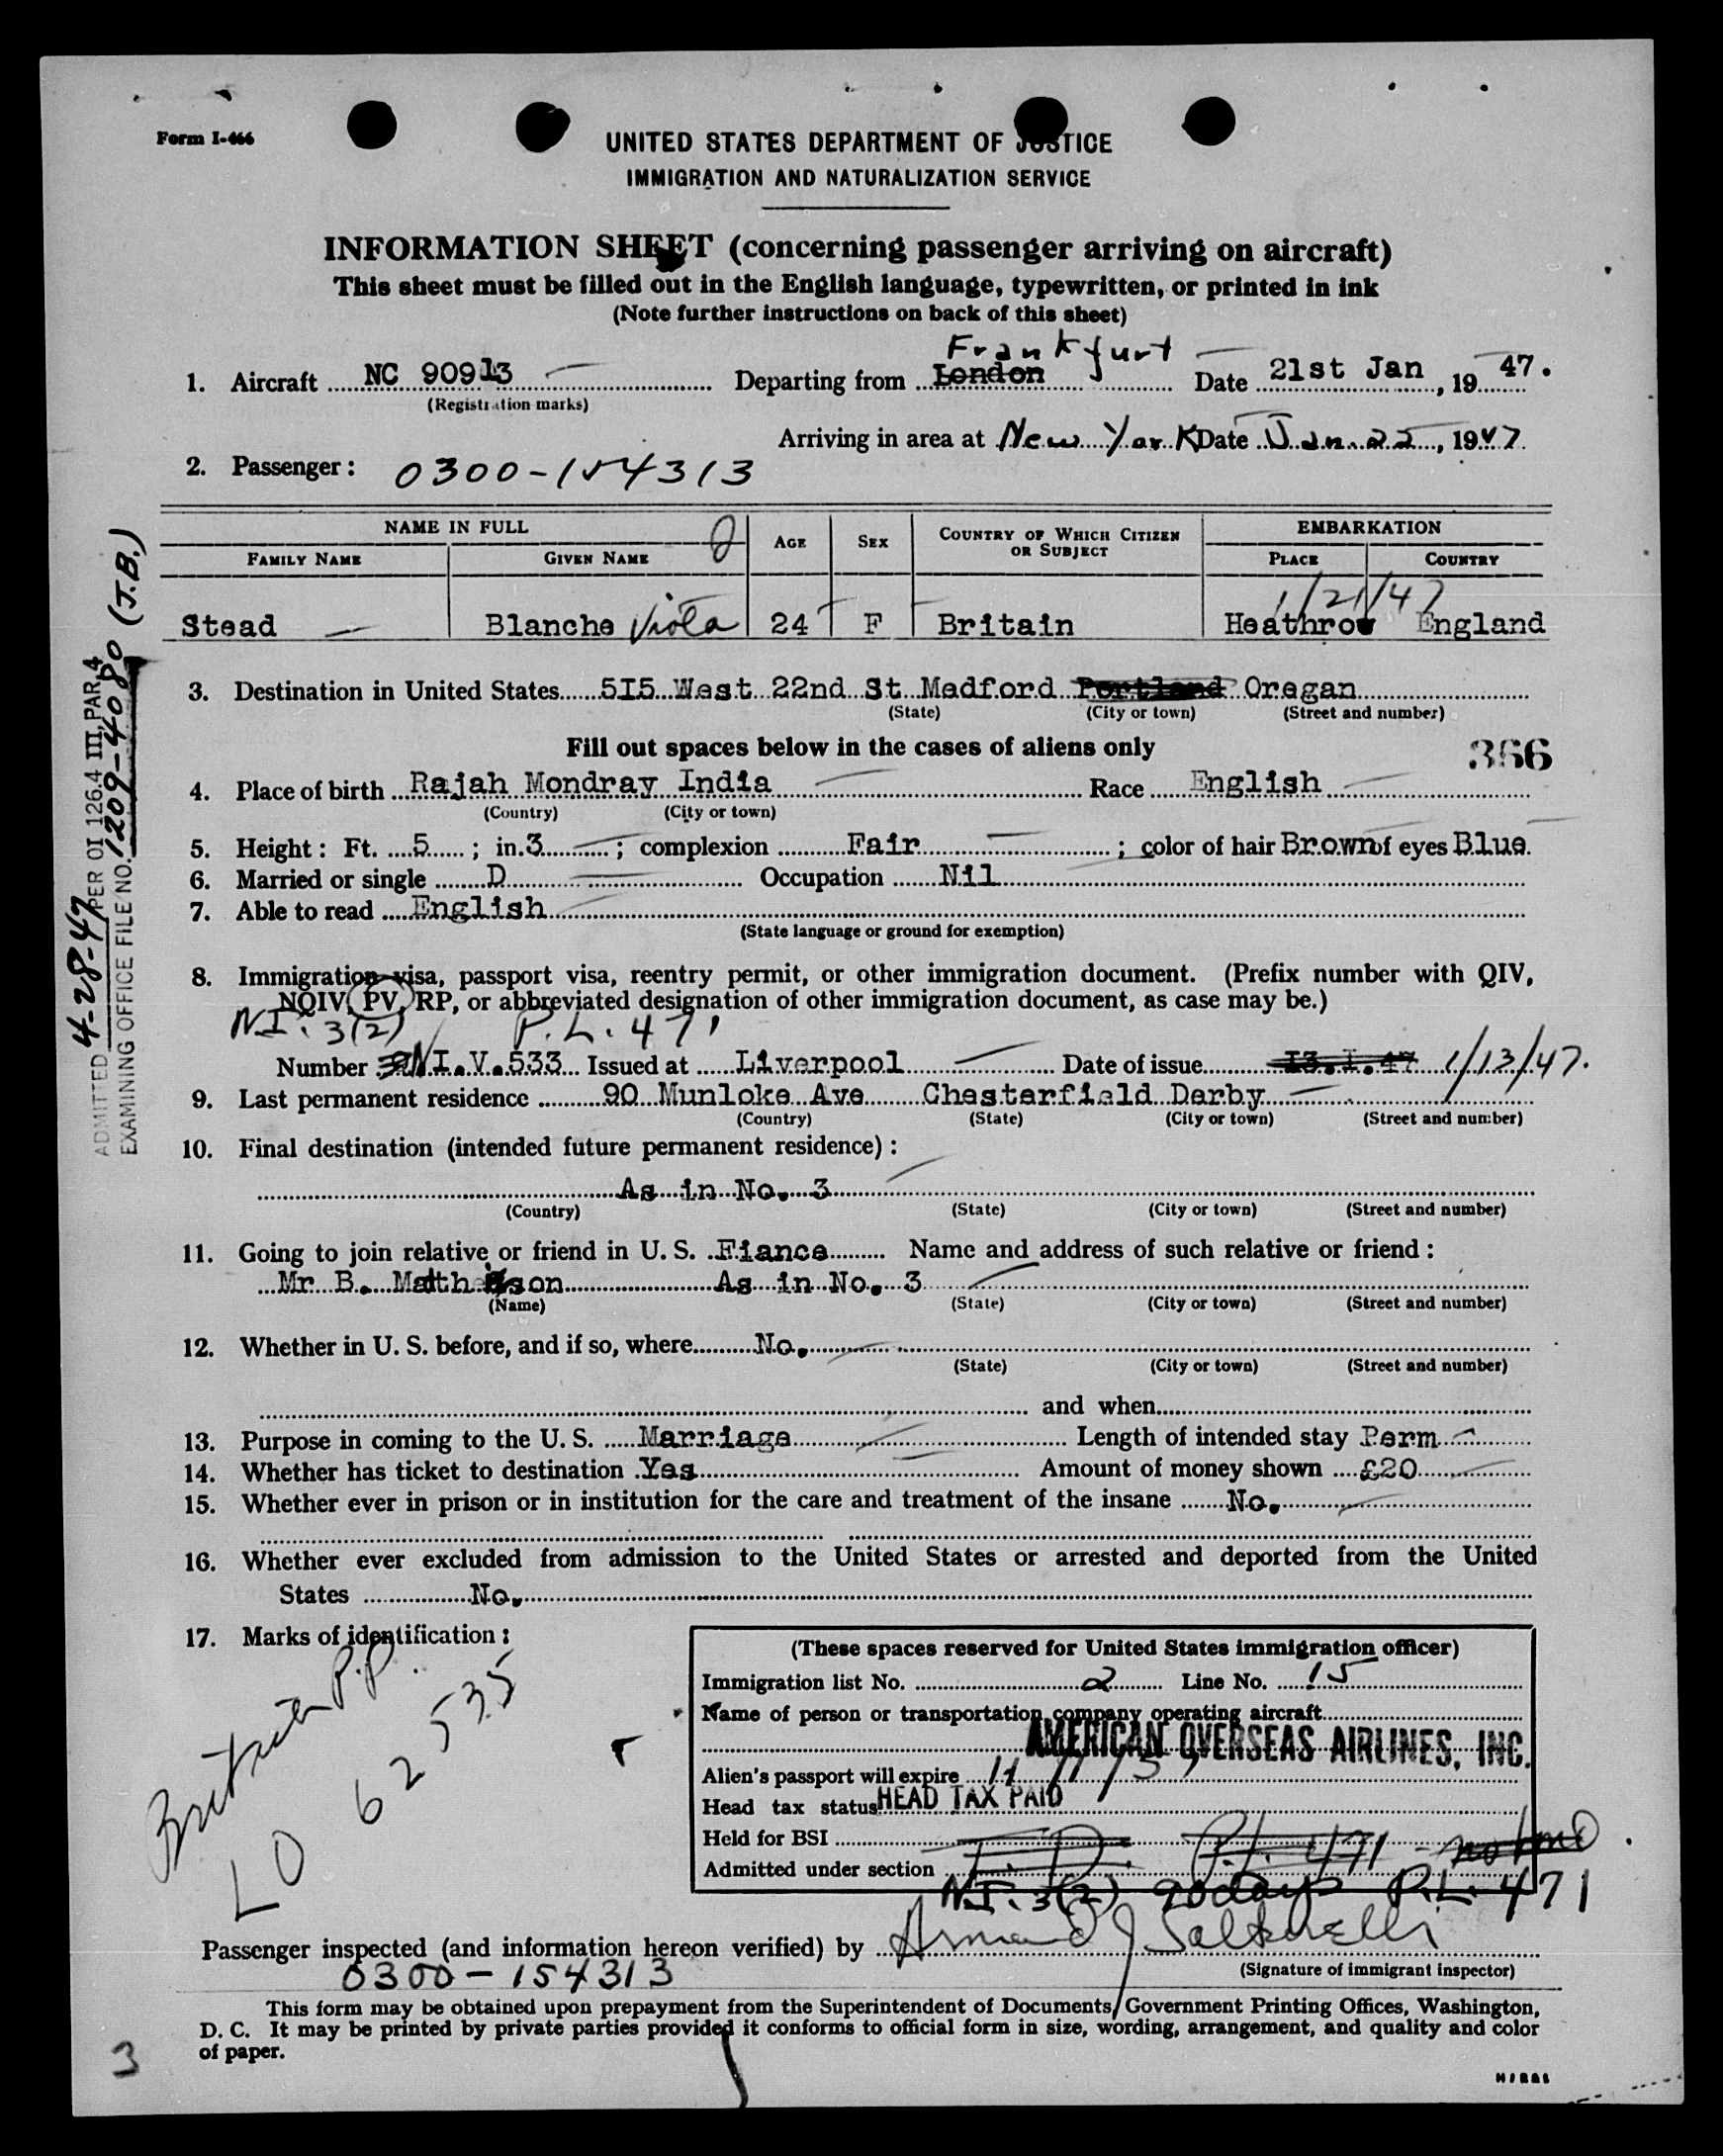 Form I-466
UNITED STATES DEPARTMENT OF JUSTICE
IMMIGRATION AND NATURALIZATION SERVICE
INFORMATION SHEET (concerning passenger arriving on aircraft)
This sheet must be filled out in the English language, typewritten, or printed in ink
(Note further instructions on back of this sheet)
Frankfurt
1. Aircraft NC 90913 Departing from London Date 21st Jan, 1947.
(Registration marks)
Arriving in area at New York Date Jan. 22, 1947.
2. Passenger: 0300-154313
NAME IN FULL AGE SEX COUNTRY OF WHICH CITIZEN OR SUBJECT EMBARKATION
FAMILY NAME GIVEN NAME PLACE COUNTRY
1/21/47
Stead Blanche Viola 24 F Britain Heathrow England
3. Destination in United States 5I5 West 22nd St Medford Portland Oregan
(State) (City or town) (Street and number)
Fill out spaces below in the cases of aliens only 366
4. Place of birth Rajah Mondray India Race English
(Country) (City or town)
5. Height: Ft. 5; in. 3; complexion Fair; color of hair Brown of eyes Blue.
6. Married or single D Occupation Nil
7. Able to read English
(State language or ground for exemption)
8. Immigration visa, passport visa, reentry permit, or other immigration document. (Prefix number with QIV,
NQIV, PV, RP, or abbreviated designation of other immigration document, as case may be.)
N.I. 3(2) P.L. 471
Number N.I.V.533 Issued at Liverpool Date of issue I3.I.47 1/13/47.
9. Last permanent residence 90 Munloke Ave Chesterfield Derby
(Country) (State) (City or town) (Street and number)
10. Final destination (intended future permanent residence):
As in No. 3
(Country) (State) (City or town) (Street and number)
11. Going to join relative or friend in U. S. Fiance Name and address of such relative or friend:
Mr. B. As in No. 3
(Name) (State) (City or town) (Street and number)
12. Whether in U. S. before, and if so, where No.
(State) (City or town) (Street and number)
and when
13. Purpose in coming to the U. S. Marriage Length of intended stay Perm
14. Whether has ticket to destination Yes Amount of money shown £20
15. Whether ever in prison or in institution for the care and treatment of the insane No.
16. Whether ever excluded from admission to the United States or arrested and deported from the United
States No.
17. Marks of identification:
British P.P.
LO 62535
(These spaces reserved for United States immigration officer)
Immigration list No. 2 Line No. 15
Name of person or transportation company operating aircraft
AMERICAN OVERSEAS AIRLINES, INC.
Alien's passport will expire 11/11/5
Head tax status HEAD TAX PAID
Held for BSI
P.L. 471
Admitted under section
N.I. 3(2) 90 days P.L. 471
Passenger inspected (and information hereon verified) by Armand J
(Signature of immigrant inspector)
0300-154313
This form may be obtained upon prepayment from the Superintendent of Documents, Government Printing Offices, Washington,
D. C. It may be printed by private parties provided it conforms to official form in size, wording, arrangement, and quality and color
of paper.
3
ADMITTED 4-28-47 PER OI 126.4 III, PAR. 4
EXAMINING OFFICE FILE NO. 1209-4080 (J.B.)